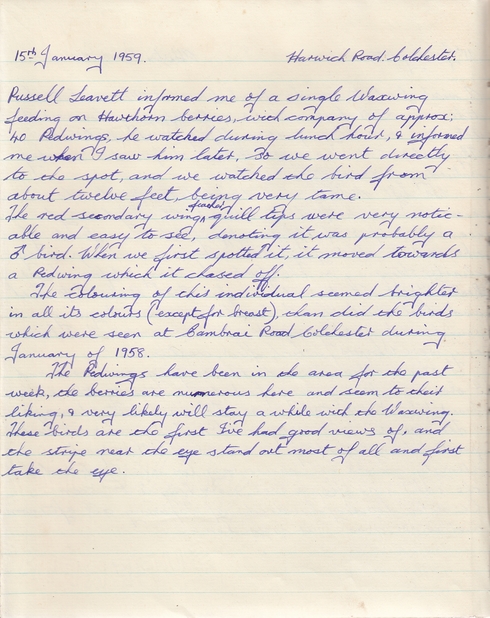 15th January 1959. Harwich Road Colchester.
Russell Leavett informed me of a single Waxwing
feeding on Hawthorn berries, with company of approx:
40 Redwings, he watched during lunch hour, & informed
me when I saw him later, so we went directly
to the spot, and we watched the bird from
about twelve feet, being very tame.
The red secondary wing feather quill tips were very notic-
able and easy to see, denoting it was probably a
♂ bird. When we first spotted it, it moved towards
a Redwing which it chased off.
The colouring of this individual seemed brighter
in all its colours (except for breast), than did the birds
which were seen at Cambrai Road Colchester during
January of 1958.
The Redwings have been in the area for the past
week, the berries are numerous here and seem to their
liking, & very likely will stay a while with the Waxwing.
These birds are the first I've had good views of, and
the stripe near the eye stand out most of all and first
take the eye.